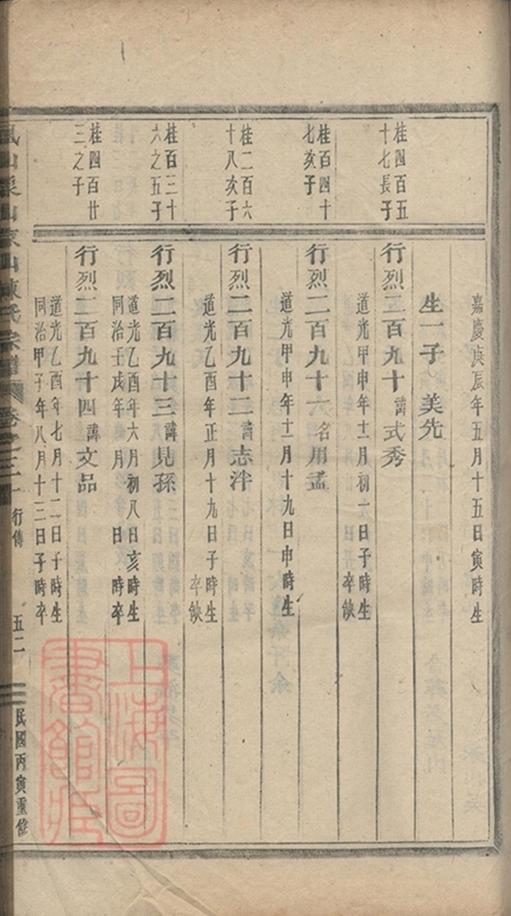 嘉慶庚辰年五月十五日寅時生
生一子 美先
桂四百五
十七長子
行烈二百九十 諱式秀
道光甲申年十二月初 日子時生
卒缺
桂百四十
七亥子
行烈二百九十六 名用孟
道光甲申年十二月十九日申時生
桂二百六
十八亥子
行烈二百九十二 諱志泮
道光乙酉年正月十九日子時生
卒缺
桂百三十
六之五子
行烈二百九十三 諱見孫
道光乙酉年六月初八日亥時生
同治壬戌年 月 日 時卒
桂四百廿
三之子
行烈二百九十四 諱文品
道光乙酉年七月十二日子時生
同治甲子年八月十三日子時卒
山 山 山陳氏宗譜 卷之三 行傳 五二 民國丙寅重修
上海圖
書館藏